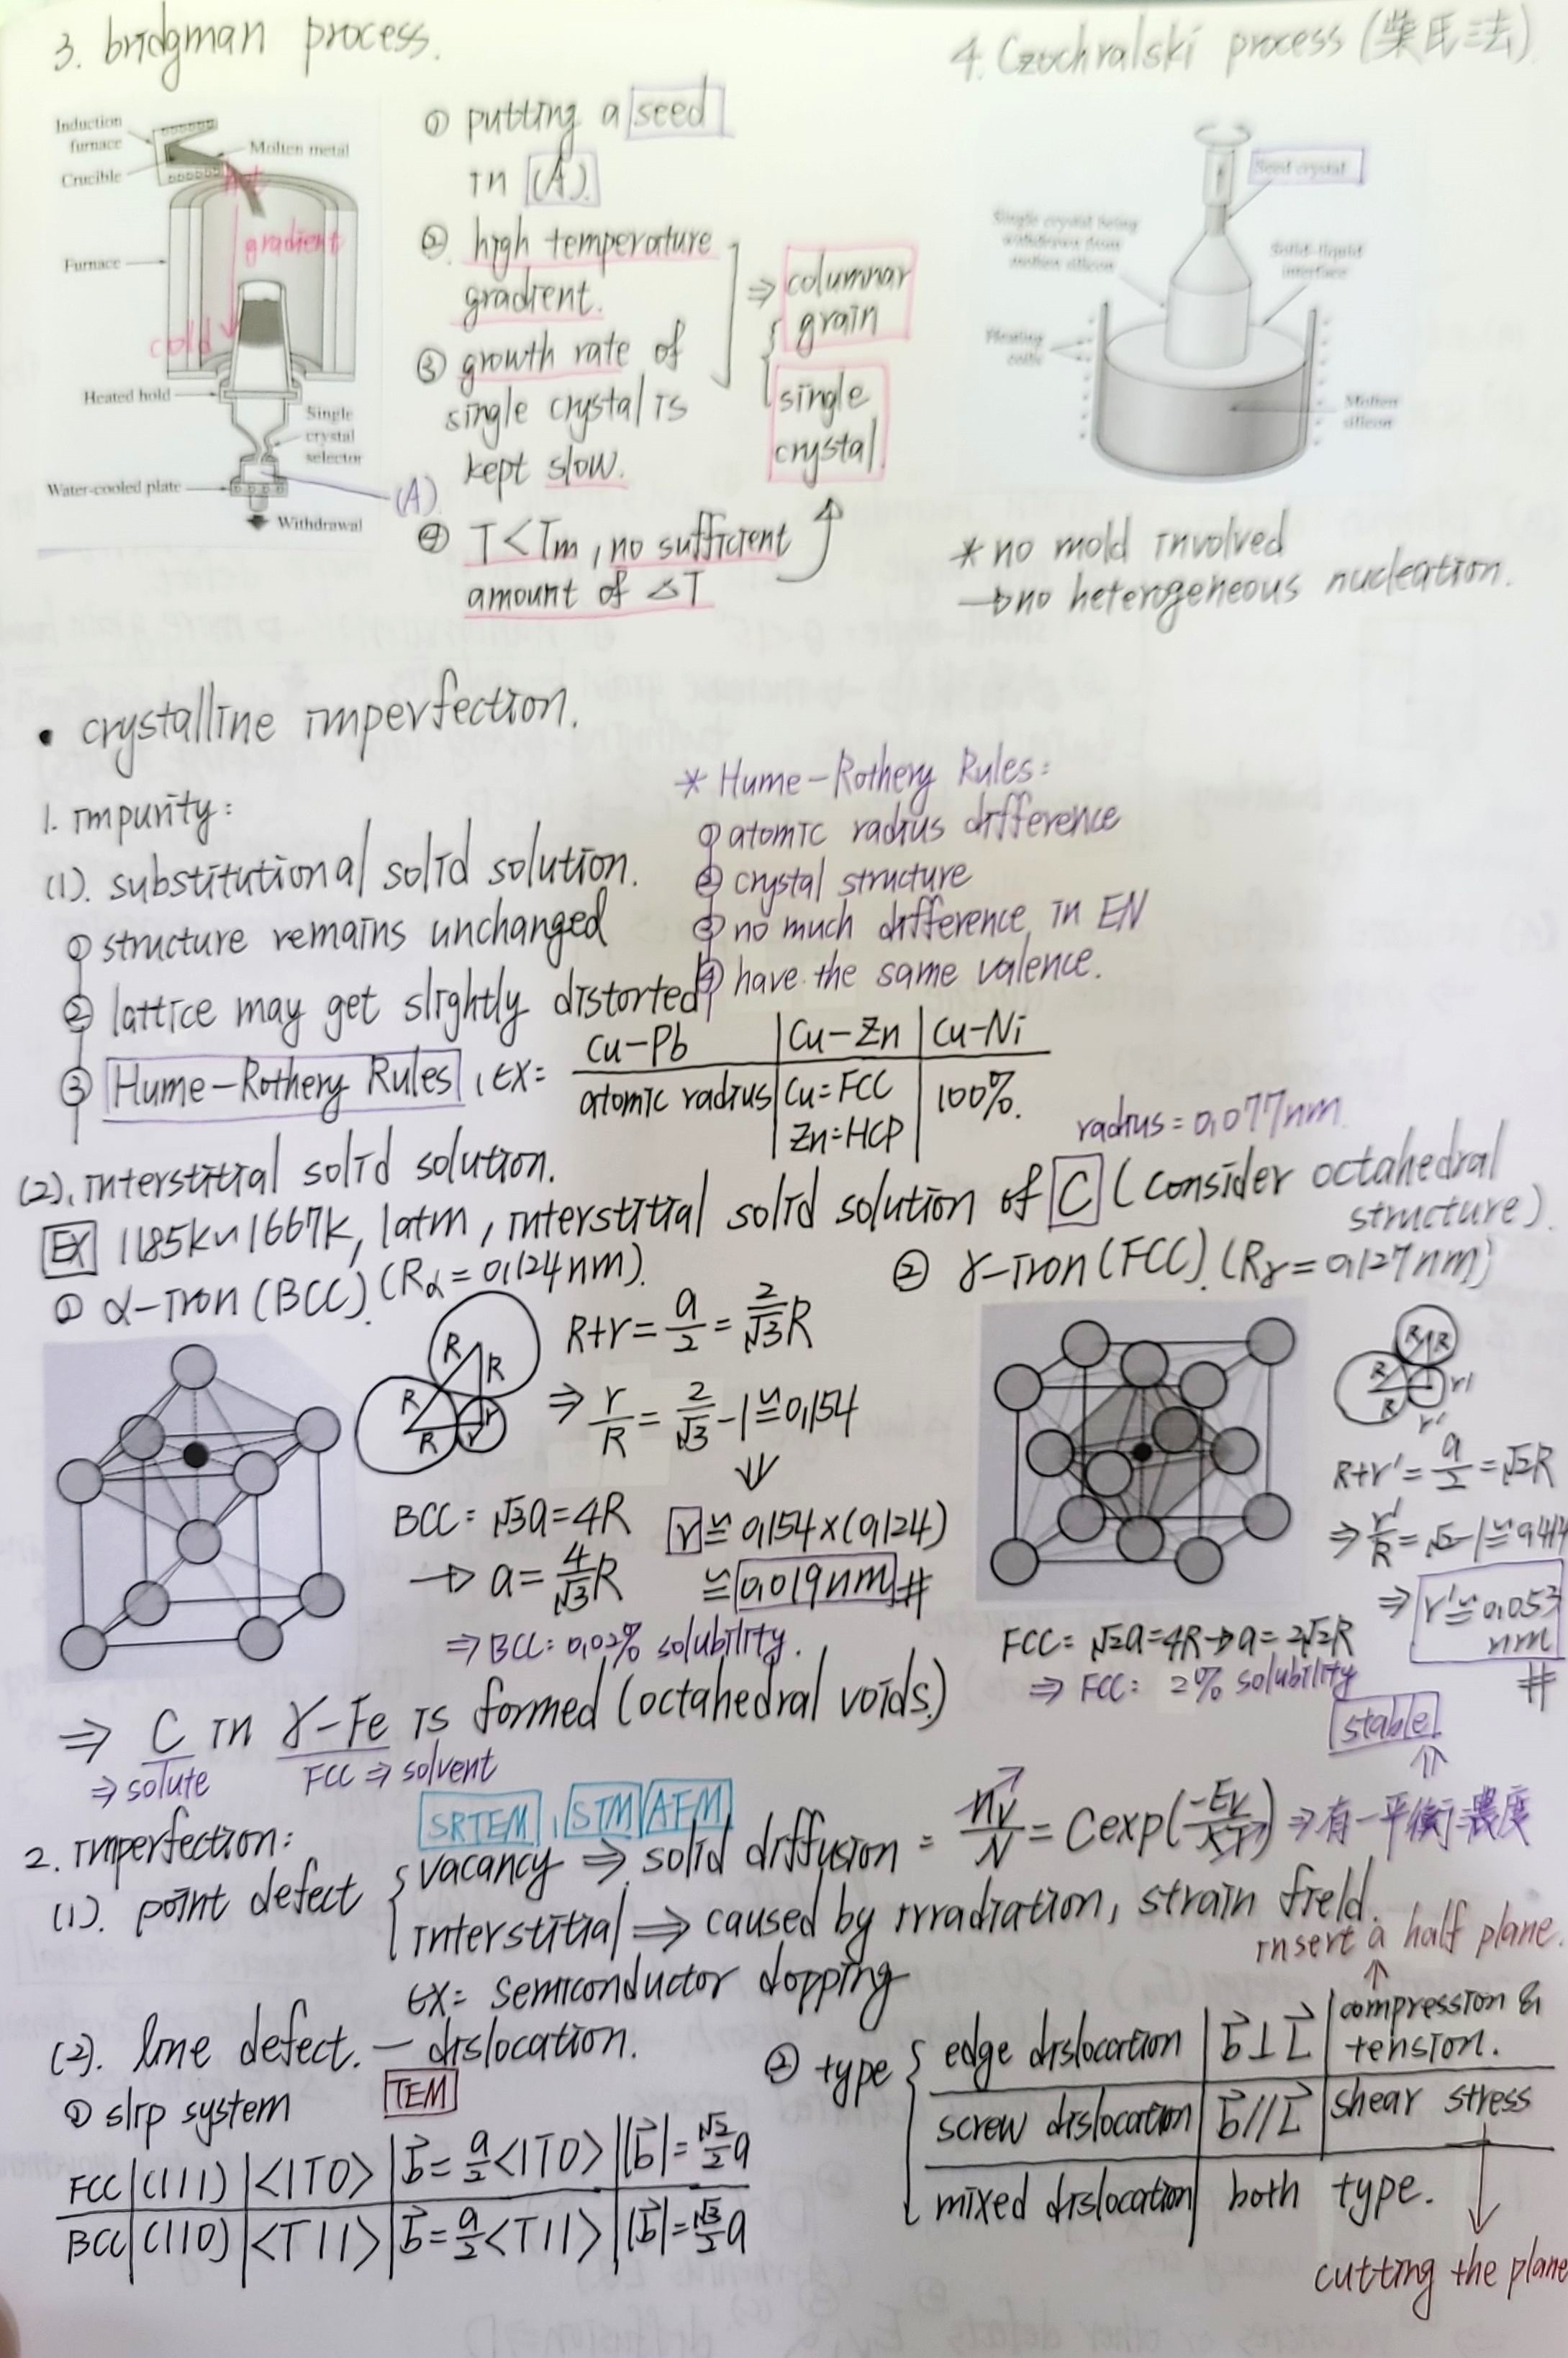 3. bridgman process.
Induction
furnace
Crucible
Molten metal
hot
gradient
Furnace
cold
Heated hold
Single
crystal
selector
Water-cooled plate
(A)
Withdrawal
① putting a seed
in (A).
② high temperature
gradient.
③ growth rate of
single crystal is
kept slow.
⇒ columnar
grain
single
crystal
④ T<Tm, no sufficient
amount of △T
4. Czochralski process (柴氏法)
Seed crystal
Single crystal being
withdrawn from
molten silicon
Solid-liquid
interface
Heating
coils
Molten
silicon
* no mold involved
→ no heterogeneous nucleation.
• crystalline imperfection.
1. impurity:
(1). substitutional solid solution.
① structure remains unchanged
② lattice may get slightly distorted
③ Hume-Rothery Rules, EX=
* Hume-Rothery Rules:
① atomic radius difference
② crystal structure
③ no much difference in EN
④ have the same valence.
Cu-Pb | Cu-Zn | Cu-Ni
atomic radius | Cu=FCC | 100%.
Zn=HCP
radius=0.077nm.
(2). interstitial solid solution.
EX 1185K~1667K, 1atm, interstitial solid solution of C (consider octahedral
structure).
① α-iron (BCC). (Rα=0.124nm).
R
R
R
R
r
R+r=a/2=2/√3R
⇒ r/R=2/√3-1≅0.154
BCC: √3a=4R
→ a=4/√3R
r≅0.154×(0.124)
≅0.019nm#
⇒ BCC: 0.02% solubility.
② γ-iron (FCC). (Rγ=0.127nm)
R
R
R
R
r'
r'
R+r'=a/2=√2R
⇒ r'/R=√2-1≅0.414
⇒ r'≅0.053
nm
#
FCC: √2a=4R→a=2√2R
⇒ FCC: 2% solubility
⇒ C in γ-Fe is formed (octahedral voids.)
⇒ solute
FCC ⇒ solvent
stable.
⇑
2. imperfection:
SRTEM, STM AFM
(1). point defect
vacancy ⇒ solid diffusion = nv/N = Cexp(-Ev/KT) ⇒ 有一平衡濃度
interstitial ⇒ caused by irradiation, strain field.
EX= semiconductor dopping
(2). line defect. — dislocation.
TEM
① slip system
FCC | (111) | <1T0> | b⃗=a/2<1T0> | |b⃗|=√2/2a
BCC | (110) | <T11> | b⃗=a/2<T11> | |b⃗|=√3/2a
insert a half plane.
② type
edge dislocation | b⃗⊥L⃗ | compression &
tension.
screw dislocation | b⃗//L⃗ | shear stress
mixed dislocation | both type.
cutting the plane